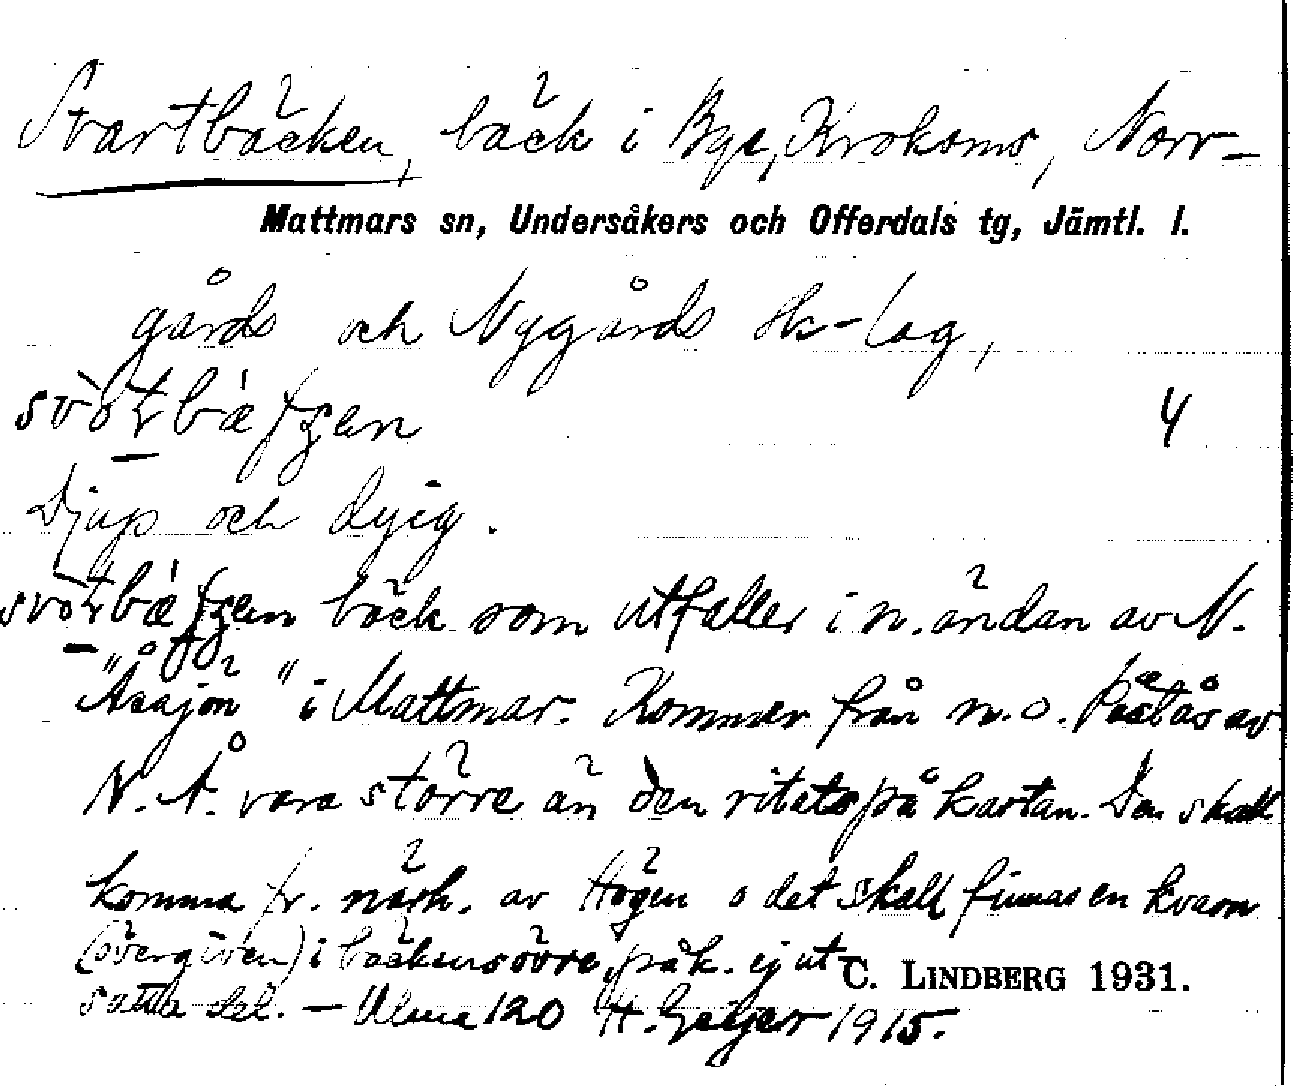 Svartbäcken, bäck i Bye, Krokoms, Norr-
Mattmars sn, Undersåkers och Offerdals tg, Jämtl. l.
gårds och Nygårds sk-lag,
4
Djup och dyig.
bäck som utfaller i n. ändan av N.
"Åsajön" i Mattmar. Kommer från n.o. Påstås av
N. Å. vara större än den ritats på kartan. Den skall
komma fr. närh. av Högen o det skall finnas en kvarn
(övergiven) i bäckens övre, på k. ej ut-
C. LINDBERG 1931.
satta del. – Ulma 120 H. Geijer 1915.